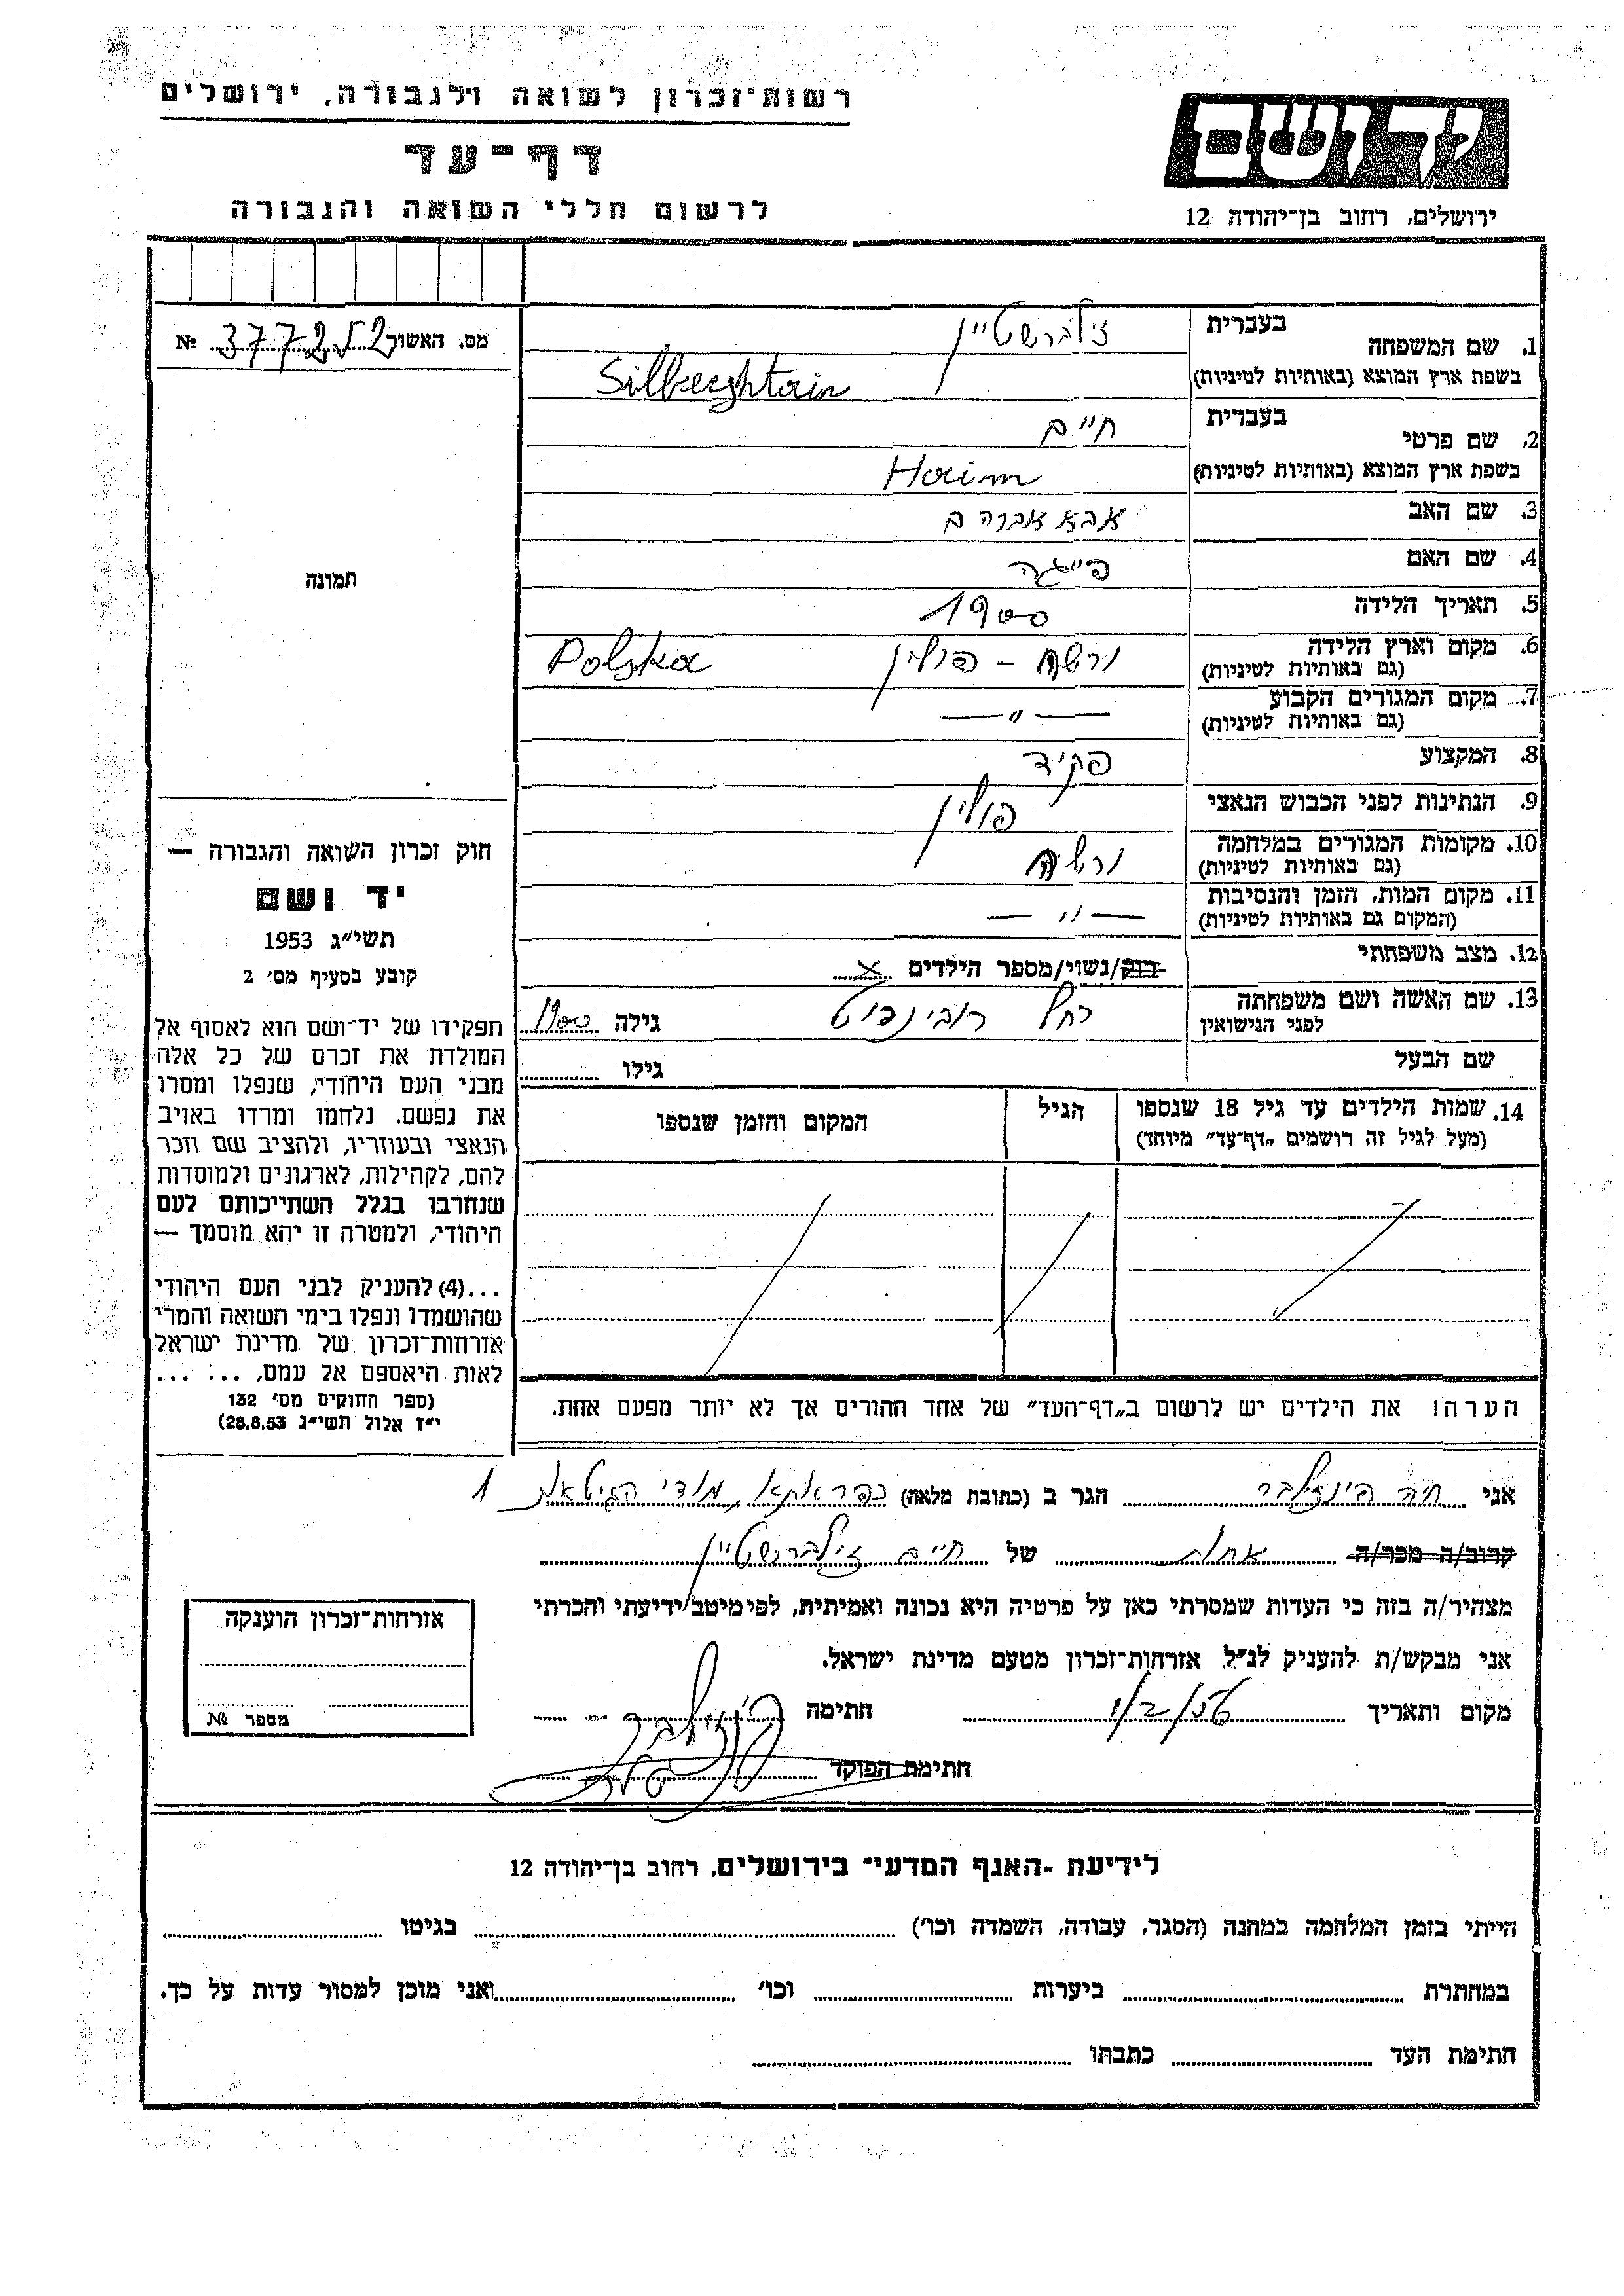 רשות־זכרון לשואה ולגבורה, ירושלים
דף־עד
לרשום חללי השואה והגבורה
יד ושם
ירושלים, רחוב בן־יהודה 12
מס. האשור 377252 №
תמונה
חוק זכרון השואה והגבורה —
יד ושם
תשי״ג 1953
קובע בסעיף מס׳ 2
תפקידו של יד־ושם הוא לאסוף אל
המולדת את זכרם של כל אלה
מבני העם היהודי, שנפלו ומסרו
את נפשם. נלחמו ומרדו באויב
הנאצי ובעוזריו, ולהציב שם וזכר
להם, לקהילות, לארגונים ולמוסדות
שנחרבו בגלל השתייכותם לעם
היהודי, ולמטרה זו יהא מוסמך —
...(4) להעניק לבני העם היהודי
שהושמדו ונפלו בימי השואה והמרי
אזרחות־זכרון של מדינת ישראל
לאות היאספם אל עמם, ... ...
(ספר החוקים מס׳ 132
י״ז אלול תשי״ג 28.8.53)
1. שם המשפחה בעברית זילברשטיין
בשפת ארץ המוצא (באותיות לטיניות) Silberghtain
2. שם פרטי בעברית חיים
בשפת ארץ המוצא (באותיות לטיניות) Haim
3. שם האב אבא אברהם
4. שם האם פייגה
5. תאריך הלידה 1900
6. מקום וארץ הלידה (גם באותיות לטיניות) ורשה – פולין Polska
7. מקום המגורים הקבוע (גם באותיות לטיניות) — " —
8. המקצוע פקיד
9. הנתינות לפני הכבוש הנאצי פולין
10. מקומות המגורים במלחמה (גם באותיות לטיניות) ורשה
11. מקום המות, הזמן והנסיבות (המקום גם באותיות לטיניות) — " —
12. מצב משפחתי רווק/נשוי/מספר הילדים X
13. שם האשה ושם משפחתה לפני הנישואין רחל רובינפוט גילה 1900
שם הבעל גילו
14. שמות הילדים עד גיל 18 שנספו (מעל לגיל זה רושמים „דף־עד״ מיוחד) הגיל המקום והזמן שנספו
הערה! את הילדים יש לרשום ב„דף־העד״ של אחד ההורים אך לא יותר מפעם אחת.
אני חיה פינזילבר הגר ב (כתובת מלאה) כפר אתא, 1
קרוב/ה מכר/ה אחות של חיים זילברשטיין
מצהיר/ה בזה כי העדות שמסרתי כאן על פרטיה היא נכונה ואמיתית, לפי מיטב ידיעתי והכרתי
אני מבקש/ת להעניק לנ״ל אזרחות־זכרון מטעם מדינת ישראל.
מקום ותאריך 1/2/56 חתימה פינזילבר
חתימת הפוקד
אזרחות־זכרון הוענקה
מספר №
לידיעת -האגף המדעי- בירושלים, רחוב בן־יהודה 12
הייתי בזמן המלחמה במחנה (הסגר, עבודה, השמדה וכו׳) בגיטו
במחתרת ביערות וכו׳ ואני מוכן למסור עדות על כך.
חתימת העד כתבתו